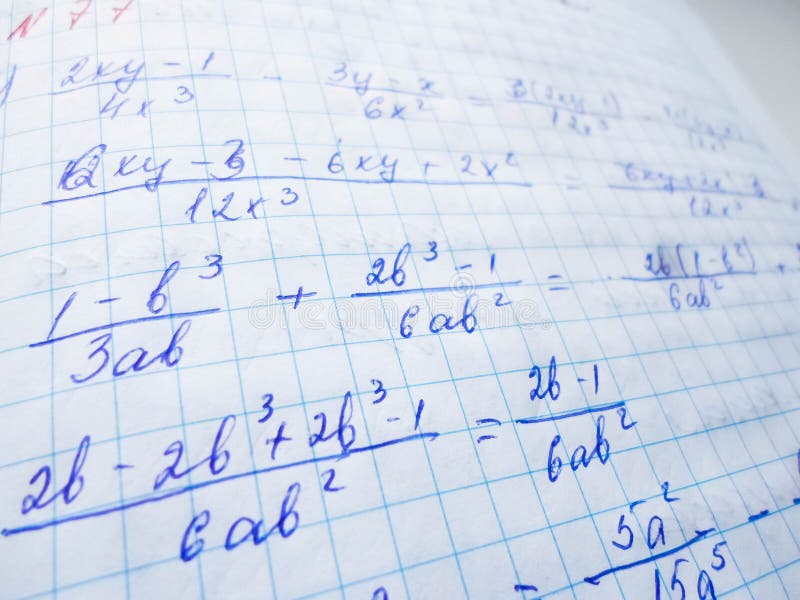 N 77
) (2xy - 1)/(4x³) - (3y - x)/(6x²) = 3(2xy-1)/(12x³) -
(6xy - 3 - 6xy + 2x²)/(12x³) =
(1 - b³)/(3ab) + (2b³ - 1)/(6ab²) = (2b(1-b²))/(6ab²) +
(2b - 2b³ + 2b³ - 1)/(6ab²) = (2b - 1)/(6ab²)
= (5a² -)/(15a⁵)
dreamstime